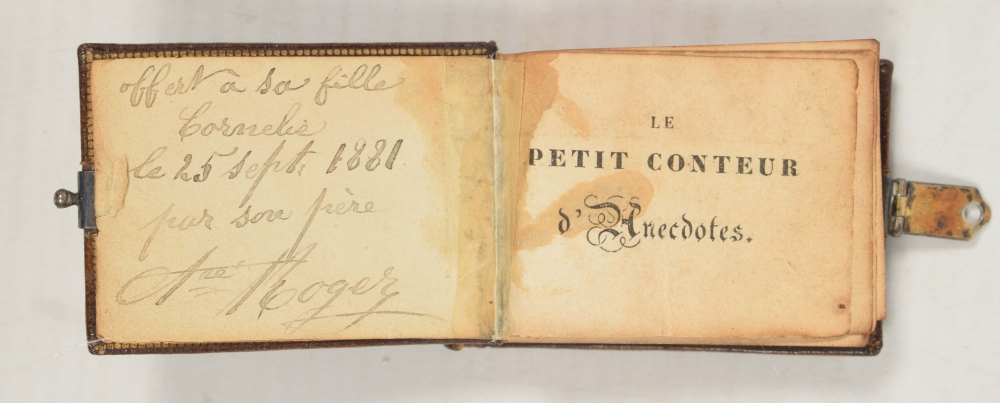 offert à sa fille
Cornelie
le 25 sept. 1881
par son père
Roger
LE
PETIT CONTEUR
d'Anecdotes.